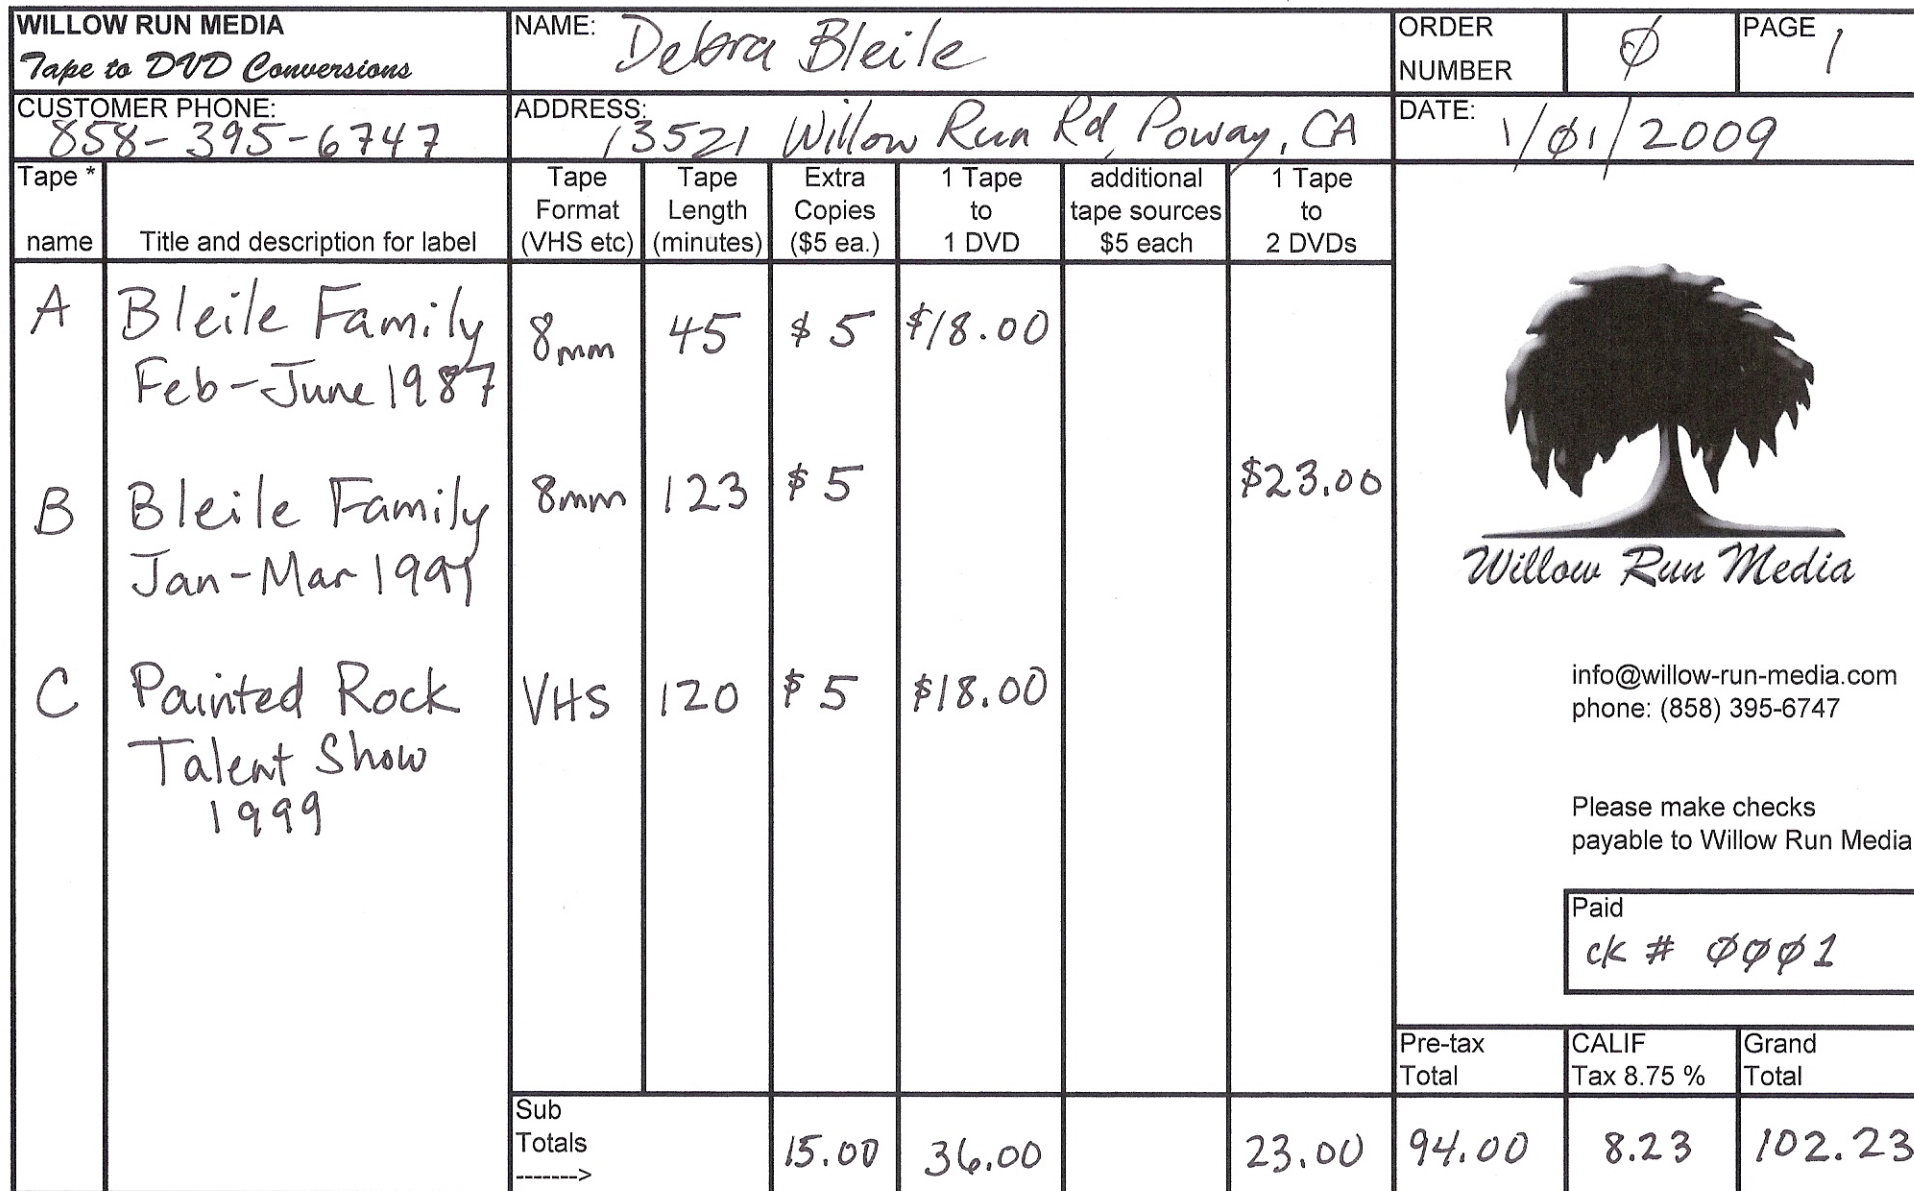 WILLOW RUN MEDIA
Tape to DVD Conversions
NAME: Debra Bleile
ORDER
NUMBER
0
PAGE 1
CUSTOMER PHONE:
858-395-6747
ADDRESS: 13521 Willow Run Rd, Poway, CA
DATE: 1/01/2009
Tape *
name
Title and description for label
Tape
Format
(VHS etc)
Tape
Length
(minutes)
Extra
Copies
($5 ea.)
1 Tape
to
1 DVD
additional
tape sources
$5 each
1 Tape
to
2 DVDs
A Bleile Family 8mm 45 $5 $18.00
Feb-June 1987
B Bleile Family 8mm 123 $5 $23.00
Jan-Mar 1991
C Painted Rock VHS 120 $5 $18.00
Talent Show
1999
Willow Run Media
info@willow-run-media.com
phone: (858) 395-6747
Please make checks
payable to Willow Run Media
Paid
ck # 0001
Pre-tax
Total
CALIF
Tax 8.75 %
Grand
Total
Sub
Totals
------->
15.00 36.00 23.00 94.00 8.23 102.23